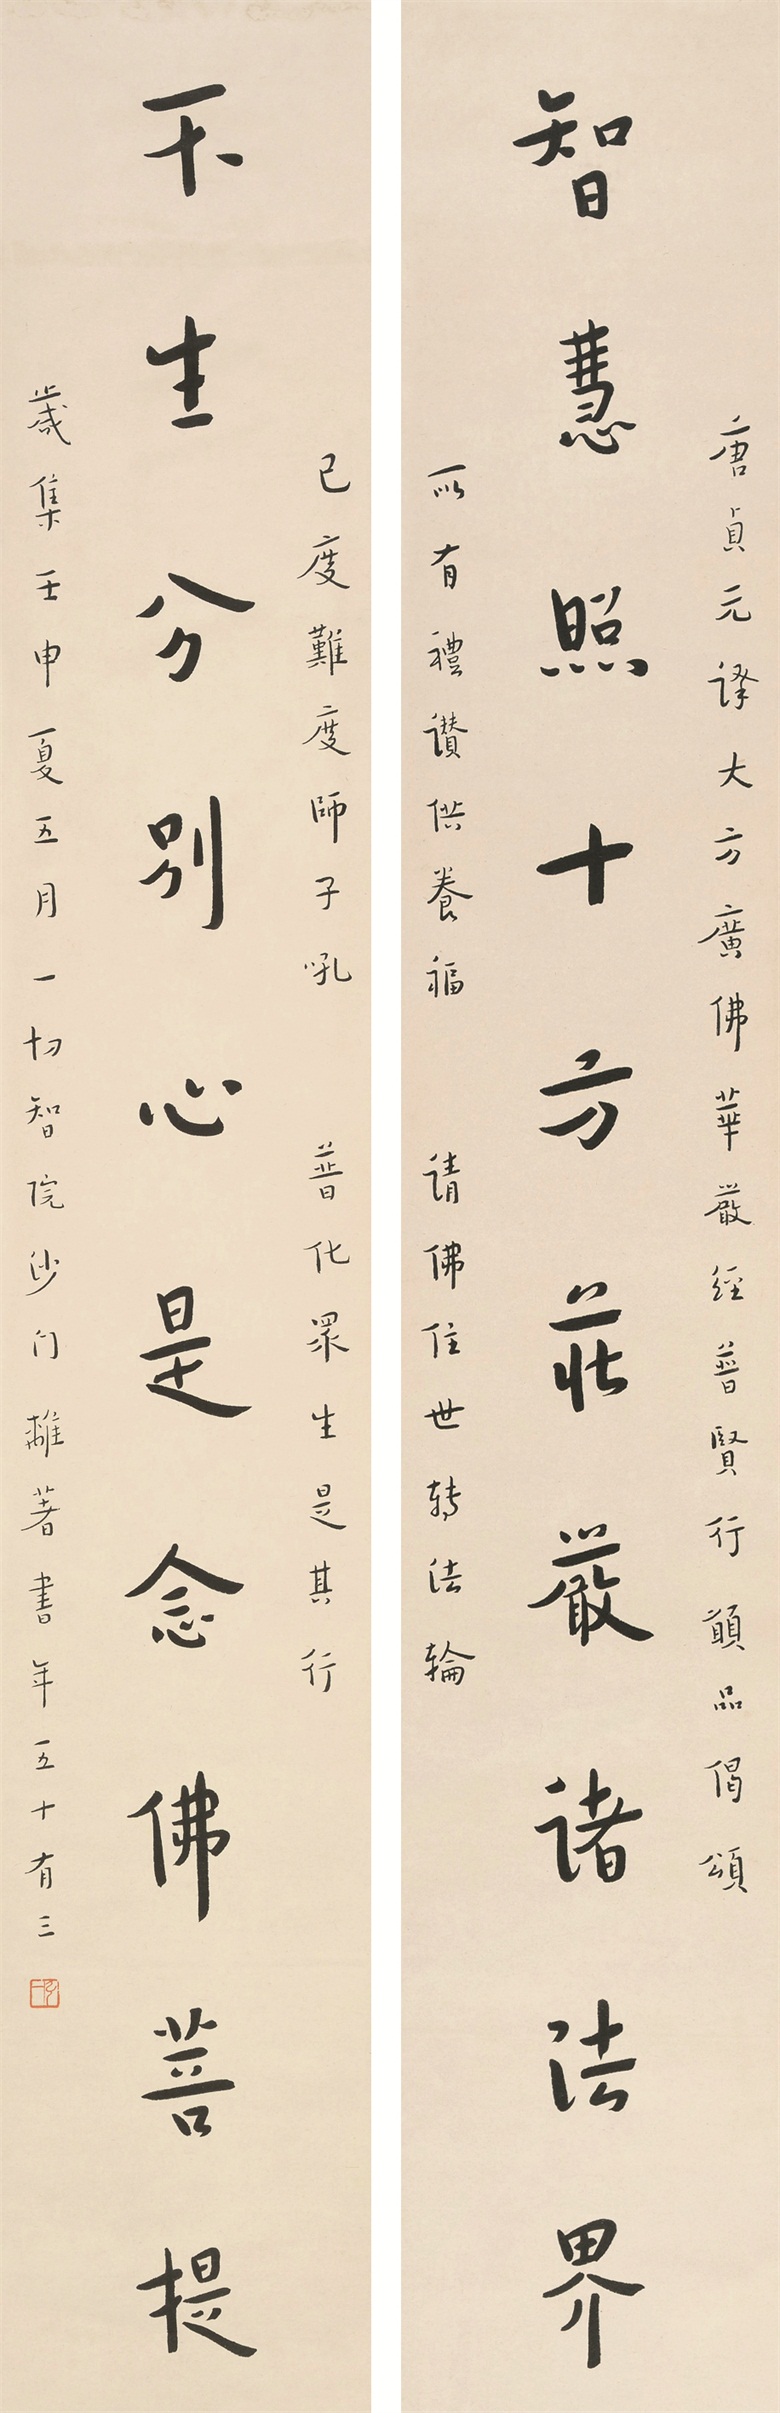 唐貞元譯大方廣佛華嚴經普賢行願品偈頌
智慧照十方莊嚴諸法界
所有禮讚供養福 請佛住世轉法輪
已度難度師子吼 普化眾生是其行
不生分別心是念佛菩提
歲集壬申夏五月一切智院沙門離著書年五十有三